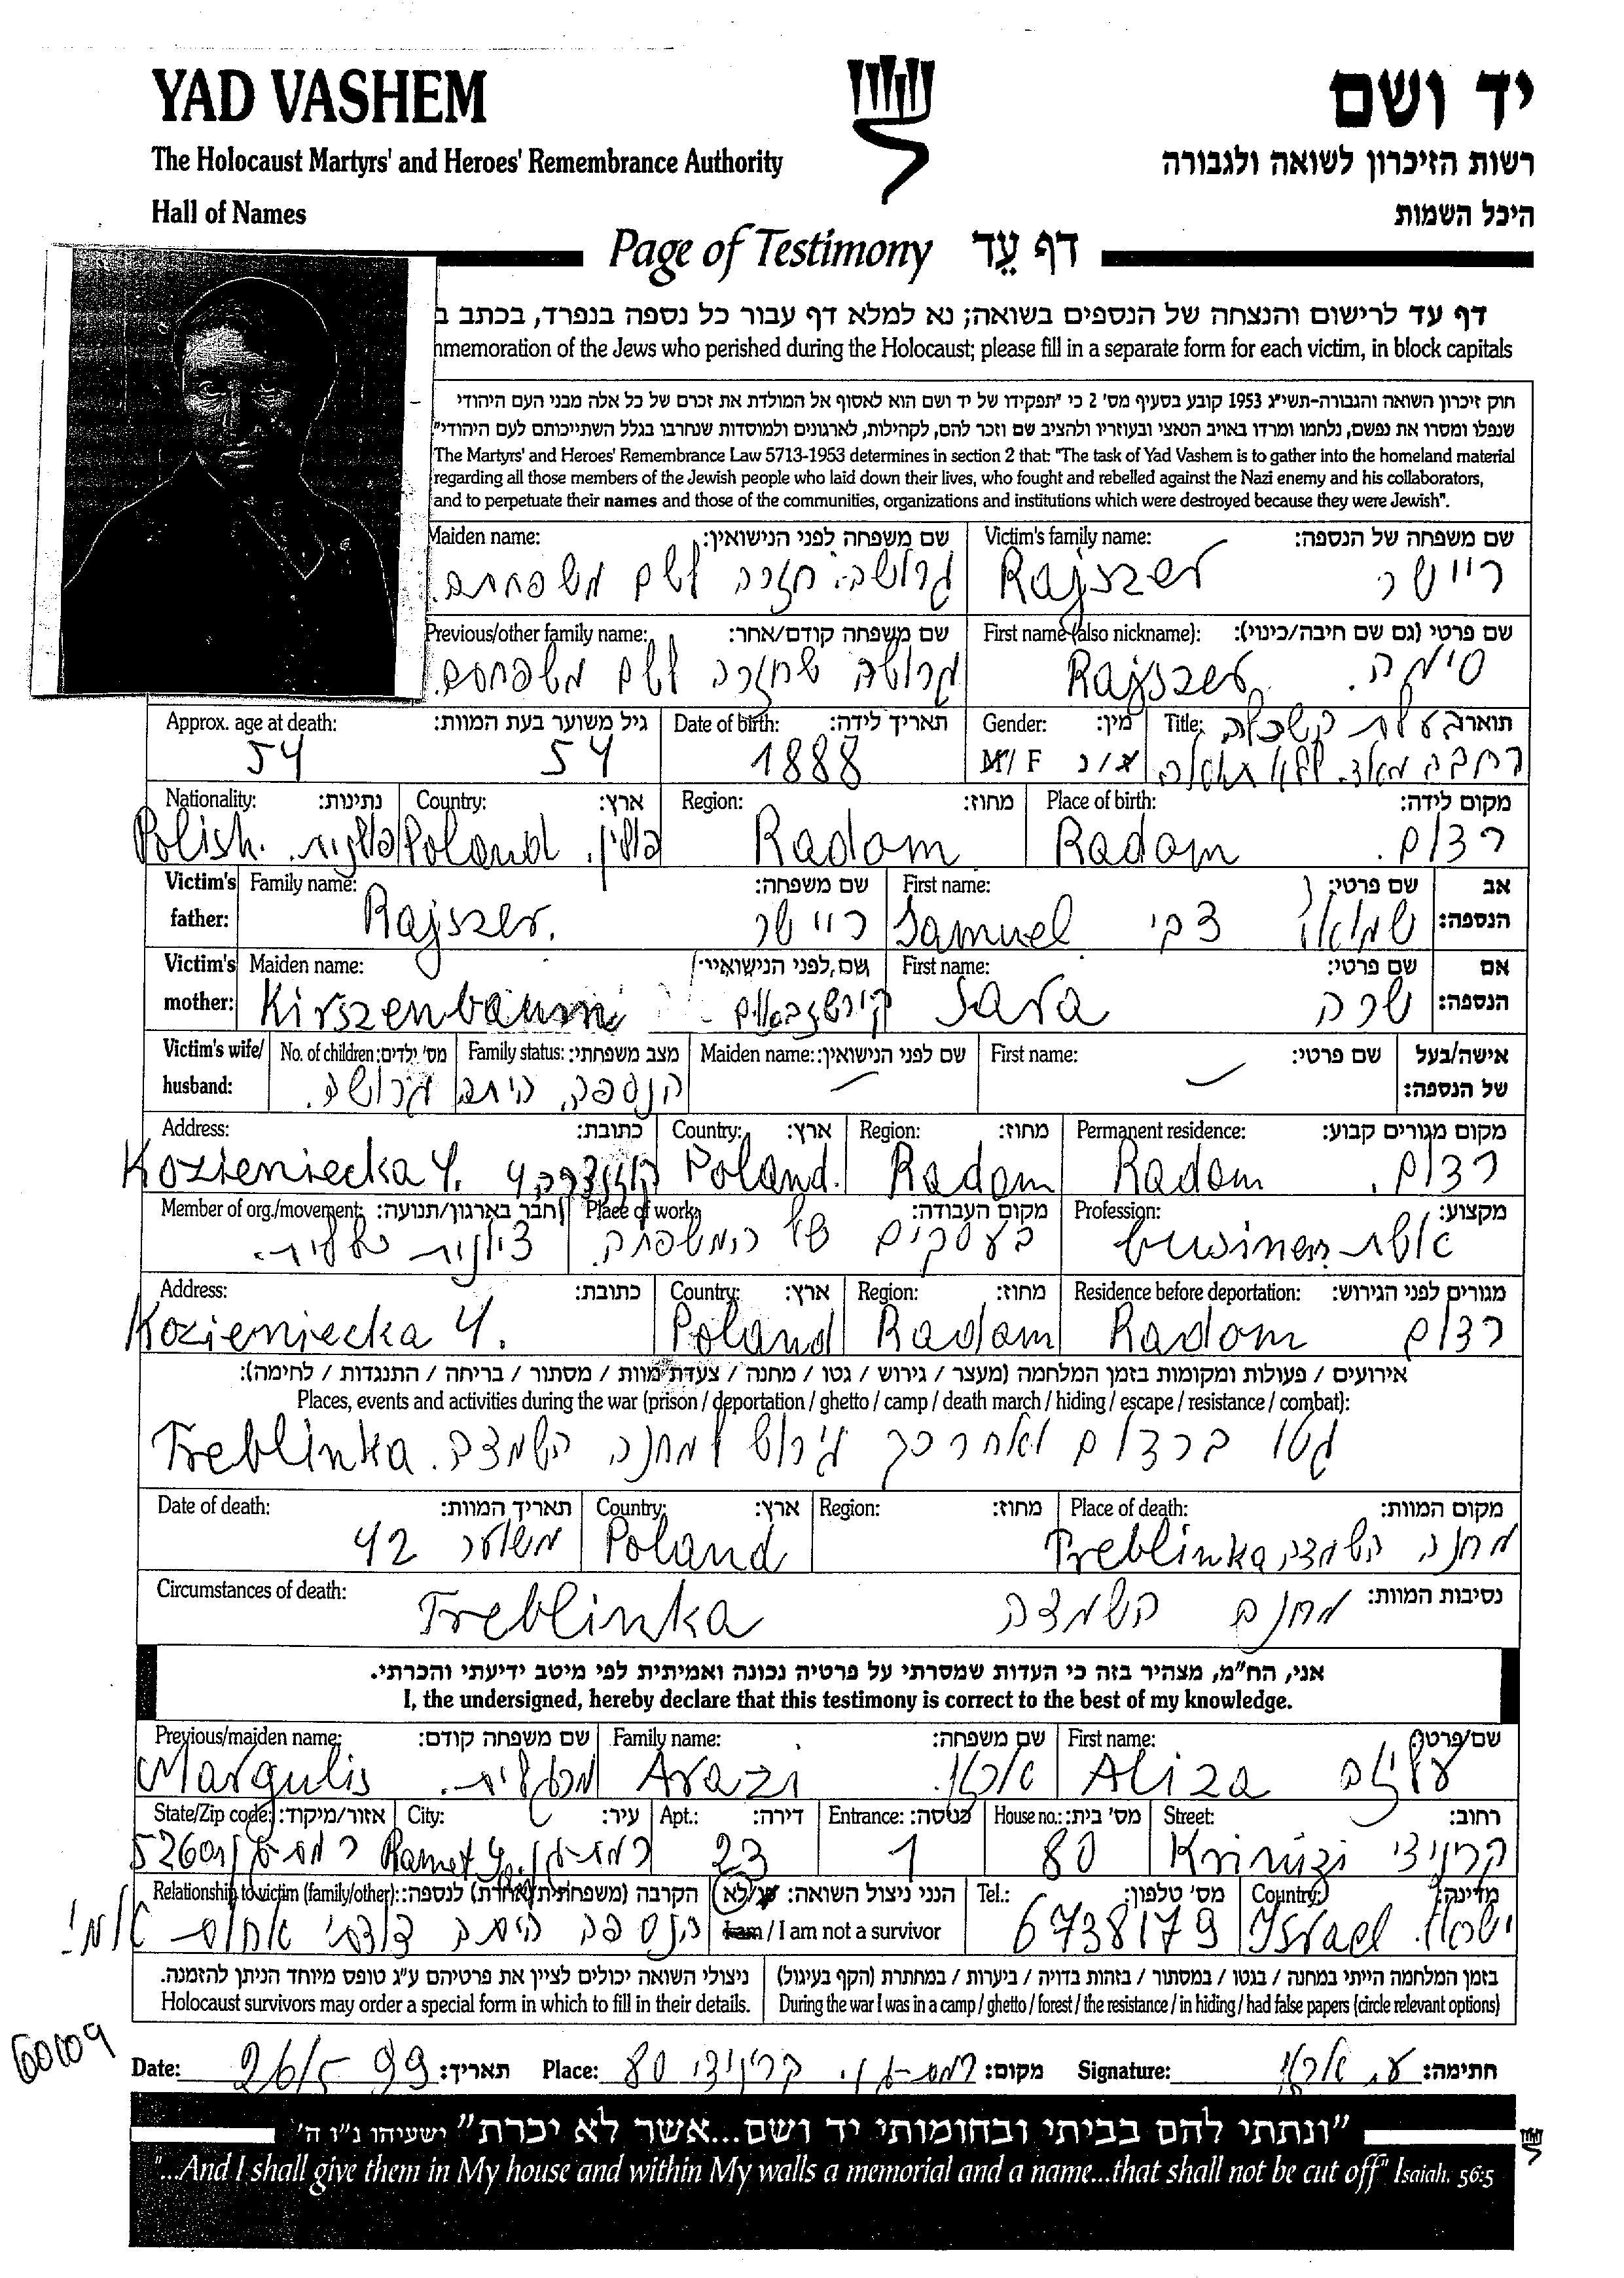 YAD VASHEM
יד ושם
The Holocaust Martyrs' and Heroes' Remembrance Authority
רשות הזיכרון לשואה ולגבורה
Hall of Names
היכל השמות
Page of Testimony דף עֵד
דף עד לרישום והנצחה של הנספים בשואה; נא למלא דף עבור כל נספה בנפרד, בכתב ב
nmemoration of the Jews who perished during the Holocaust; please fill in a separate form for each victim, in block capitals
חוק זיכרון השואה והגבורה-תשי"ג 1953 קובע בסעיף מס' 2 כי "תפקידו של יד ושם הוא לאסוף אל המולדת את זכרם של כל אלה מבני העם היהודי
שנפלו ומסרו את נפשם, נלחמו ומרדו באויב הנאצי ובעוזריו ולהציב שם וזכר להם, לקהילות, לארגונים ולמוסדות שנחרבו בגלל השתייכותם לעם היהודי"
The Martyrs' and Heroes' Remembrance Law 5713-1953 determines in section 2 that: "The task of Yad Vashem is to gather into the homeland material
regarding all those members of the Jewish people who laid down their lives, who fought and rebelled against the Nazi enemy and his collaborators,
and to perpetuate their names and those of the communities, organizations and institutions which were destroyed because they were Jewish".
Maiden name: שם משפחה לפני הנישואין: Victim's family name: שם משפחה של הנספה:
גרושה. חזרה לשם משפחתה. Rajszer ריישר
Previous/other family name: שם משפחה קודם/אחר: First name (also nickname): שם פרטי (גם שם חיבה/כינוי):
גרושה שחזרה לשם משפחתה. Rajszer סימה.
Approx. age at death: גיל משוער בעת המוות: Date of birth: תאריך לידה: Gender: מין: Title: תואר: בעלת השכלה
54 54 1888 M/ F ז/נ רחבה מאד. ללא תואר
Nationality: נתינות: Country: ארץ: Region: מחוז: Place of birth: מקום לידה:
Polish. פולנית. Poland פולין. Radom Radom רדום.
Victim's father: Family name: שם משפחה: First name: שם פרטי: אב הנספה:
Rajszer. ריישר Samuel צבי שמואל
Victim's mother: Maiden name: שם לפני הנישואין: First name: שם פרטי: אם הנספה:
Kirszenbaum קירשנבאום Sara שרה
Victim's wife/ husband: No. of children: מס' ילדים: Family status: מצב משפחתי: Maiden name: שם לפני הנישואין: First name: שם פרטי: אישה/בעל של הנספה:
הנספה היתה גרושה.
Address: כתובת: Country: ארץ: Region: מחוז: Permanent residence: מקום מגורים קבוע:
Kozieniecka 4. Poland. Radom Radom רדום.
Member of org./movement: חבר בארגון/תנועה: Place of work: מקום העבודה: Profession: מקצוע:
ציונית כללית. בעסקים של המשפחה. אשת buwinen
Address: כתובת: Country: ארץ: Region: מחוז: Residence before deportation: מגורים לפני הגירוש:
Kozieniecka 4. Poland Radom Radom רדום
אירועים / פעולות ומקומות בזמן המלחמה (מעצר / גירוש / גטו / מחנה / צעדת מוות / מסתור / בריחה / התנגדות / לחימה):
Places, events and activities during the war (prison / deportation / ghetto / camp / death march / hiding / escape / resistance / combat):
גטו ברדום ואחר כך גירוש למחנה השמדה. Treblinka
Date of death: תאריך המוות: Country: ארץ: Region: מחוז: Place of death: מקום המוות:
משוער 42 Poland מחנה השמדה Treblinka
Circumstances of death: נסיבות המוות:
Treblinka מחנה השמדה
אני, הח"מ, מצהיר בזה כי העדות שמסרתי על פרטיה נכונה ואמיתית לפי מיטב ידיעתי והכרתי.
I, the undersigned, hereby declare that this testimony is correct to the best of my knowledge.
Previous/maiden name: שם משפחה קודם: Family name: שם משפחה: First name: שם פרטי:
Margulis מרגליות. Arazi ארזי. Aliza עליזה
State/Zip code: אזור/מיקוד: City: עיר: Apt.: דירה: Entrance: כניסה: House no.: מס' בית: Street: רחוב:
52601 רמת גן Ramat Gan רמת-גן. 23 1 80 Krinizi קריניצי
Relationship to victim (family/other): הקרבה (משפחתית/אחרת) לנספה: הנני ניצול השואה: כן/לא Tel.: מס' טלפון: Country: מדינה:
הנספה היתה דודתי אחות אמי. I am / I am not a survivor 6738179 Israel ישראל.
ניצולי השואה יכולים לציין את פרטיהם ע"ג טופס מיוחד הניתן להזמנה. בזמן המלחמה הייתי במחנה / בגטו / במסתור / בזהות בדויה / ביערות / במחתרת (הקף בעיגול)
Holocaust survivors may order a special form in which to fill in their details. During the war I was in a camp / ghetto / forest / the resistance / in hiding / had false papers (circle relevant options)
60109
Date: 26/5 99 תאריך: Place: רמת-גן, קריניצי 80 מקום: Signature: ע. ארזי חתימה:
"ונתתי להם בביתי ובחומותי יד ושם...אשר לא יכרת" ישעיהו נ"ו ה'
"...And I shall give them in My house and within My walls a memorial and a name...that shall not be cut off" Isaiah, 56:5